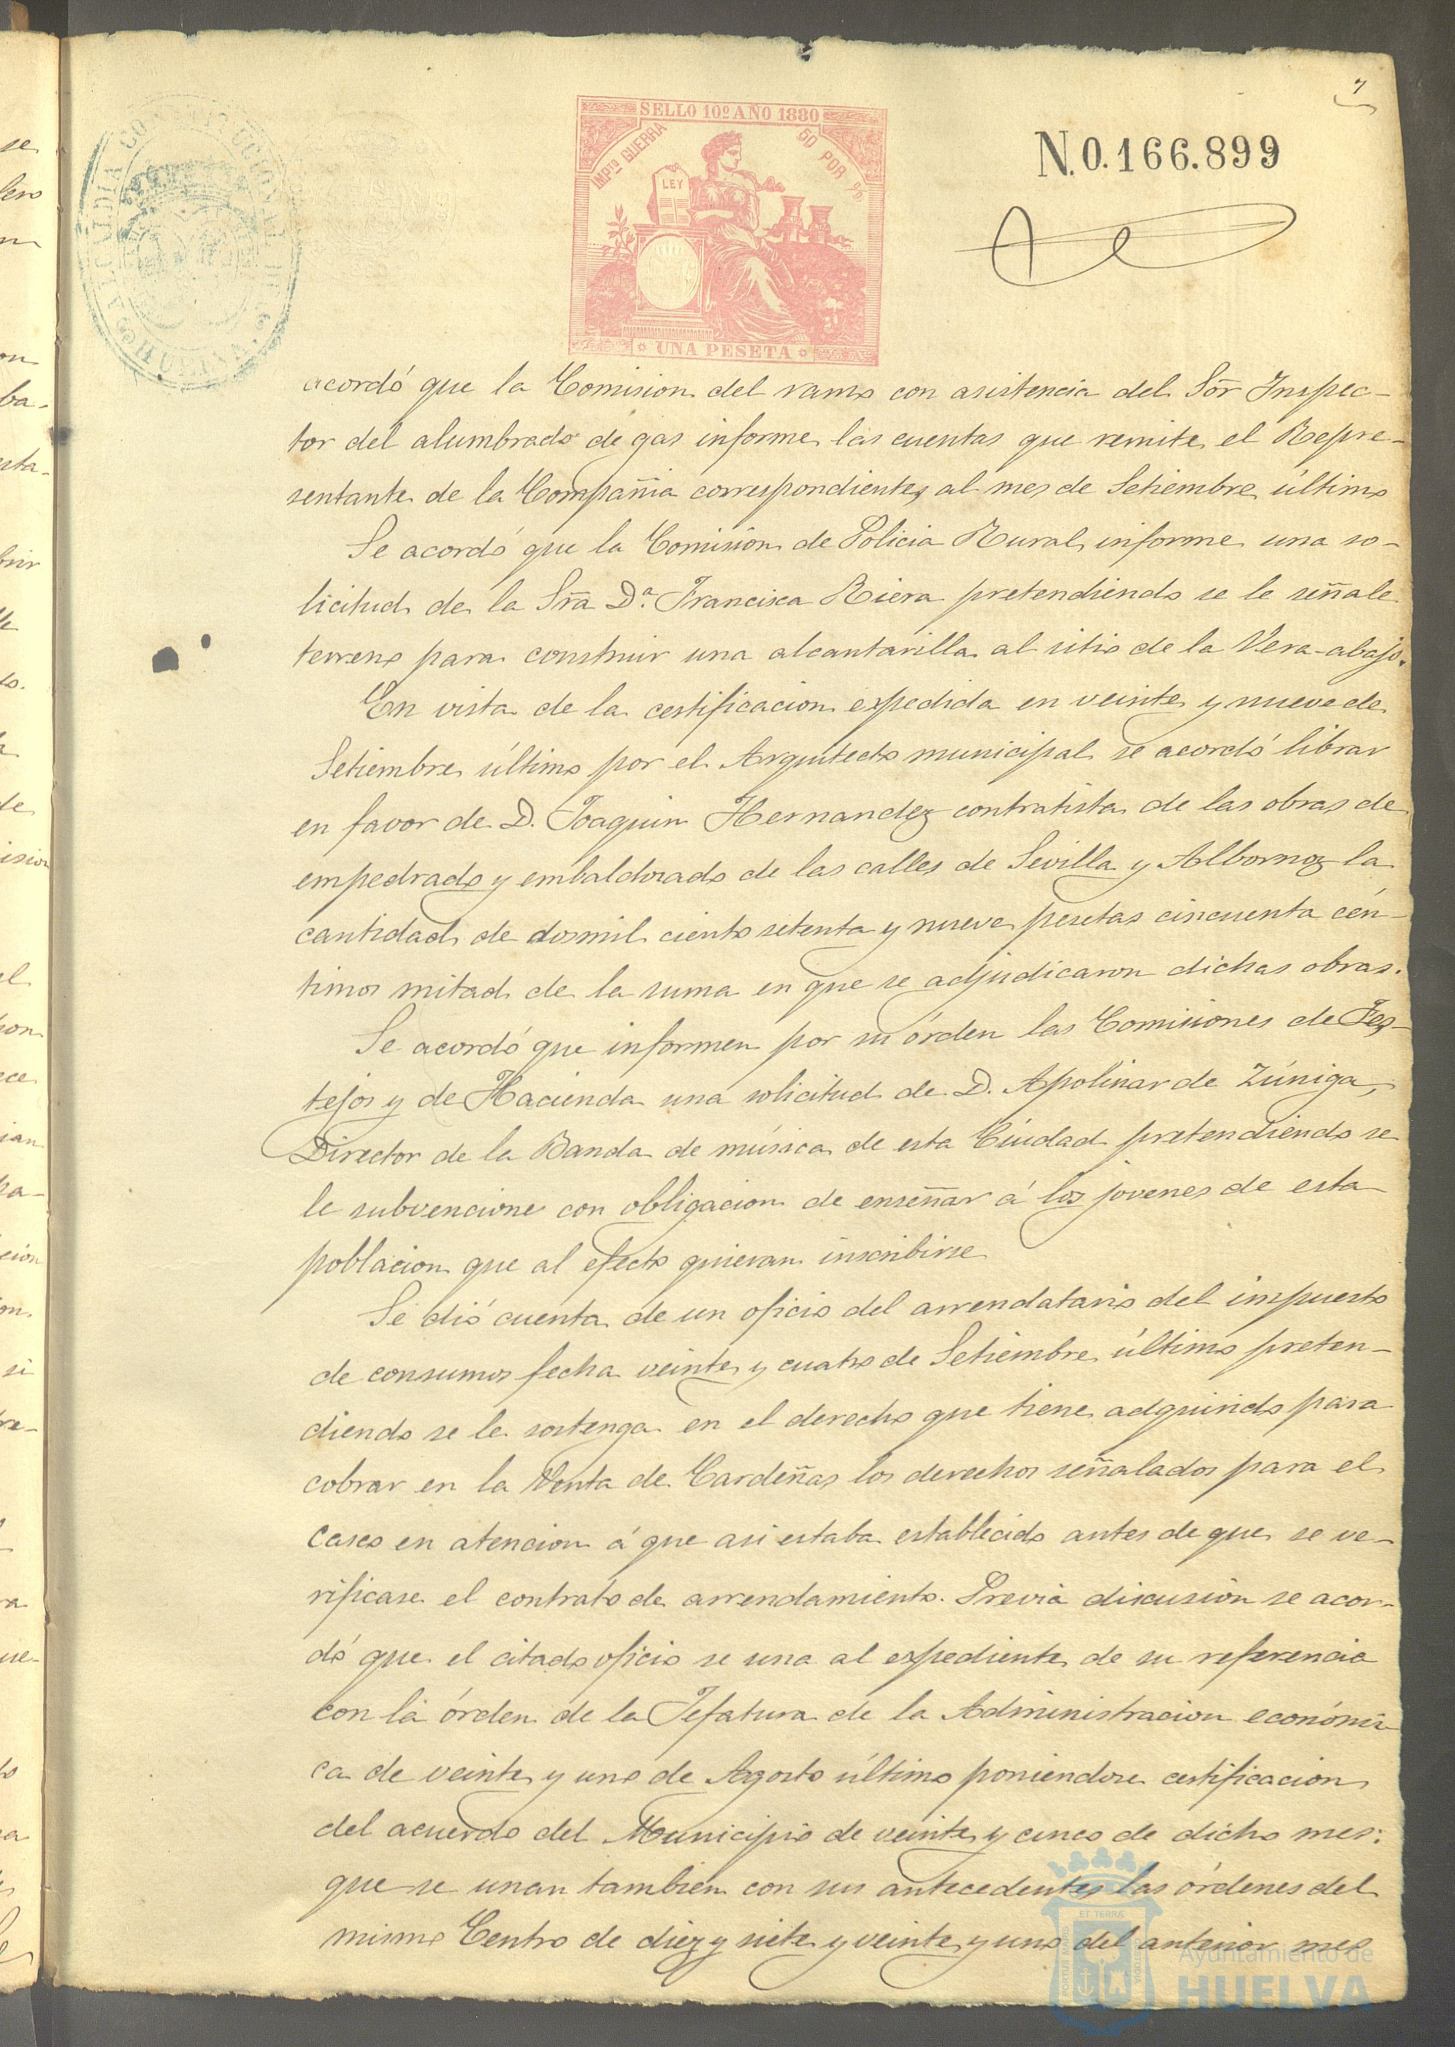 7
SELLO 10º AÑO 1880
IMPTO GUERRA
50 POR %
LEY
UNA PESETA
N.0.166.899
ALCALDIA CONSTITUCIONAL DE
HUELVA
acordó que la Comision del ramo con asistencia del Sōr Inspec-
tor del alumbrado de gas informe las cuentas que remite el Repre-
sentante de la Compañia correspondientes al mes de Setiembre último
Se acordó que la Comision de Policia Rural informe una so-
licitud de la Srā Dª. Francisca Riera pretendiendo se le señale
terreno para construir una alcantarilla al sitio de la Vera-abajo.
En vista de la certificacion expedida en veinte y nueve de
Setiembre último por el Arquitecto municipal se acordó librar
en favor de D. Joaquin Hernandez contratista de las obras de
empedrado y embaldosado de las calles de Sevilla y Albornoz la
cantidad de dosmil ciento setenta y nueve pesetas cincuenta cén-
timos mitad de la suma en que se adjudicaron dichas obras.
Se acordó que informen por su órden las Comisiones de Fes-
tejos y de Hacienda una solicitud de D. Apolinar de Zúniga,
Director de la Banda de música de esta Ciudad pretendiendo se
le subvencione con obligacion de enseñar á los jovenes de esta
poblacion que al efecto quieran inscribirse
Se dió cuenta de un oficio del arrendatario del impuesto
de consumos fecha veinte y cuatro de Setiembre último preten-
diendo se le sostenga en el derecho que tiene adquirido para
cobrar en la Venta de Cardeñas los derechos señalados para el
casco en atencion á que asi estaba establecido antes de que se ve-
rificase el contrato de arrendamiento. Previa discusion se acor-
dó que el citado oficio se una al expediente de su referencia
con la órden de la Jefatura de la Administracion económi-
ca de veinte y uno de Agosto último poniendose certificacion
del acuerdo del Municipio de veinte y cinco de dicho mes:
que se unan tambien con sus antecedentes las órdenes del
mismo Centro de diez y siete y veinte y uno del anterior mes
Ayuntamiento de
HUELVA